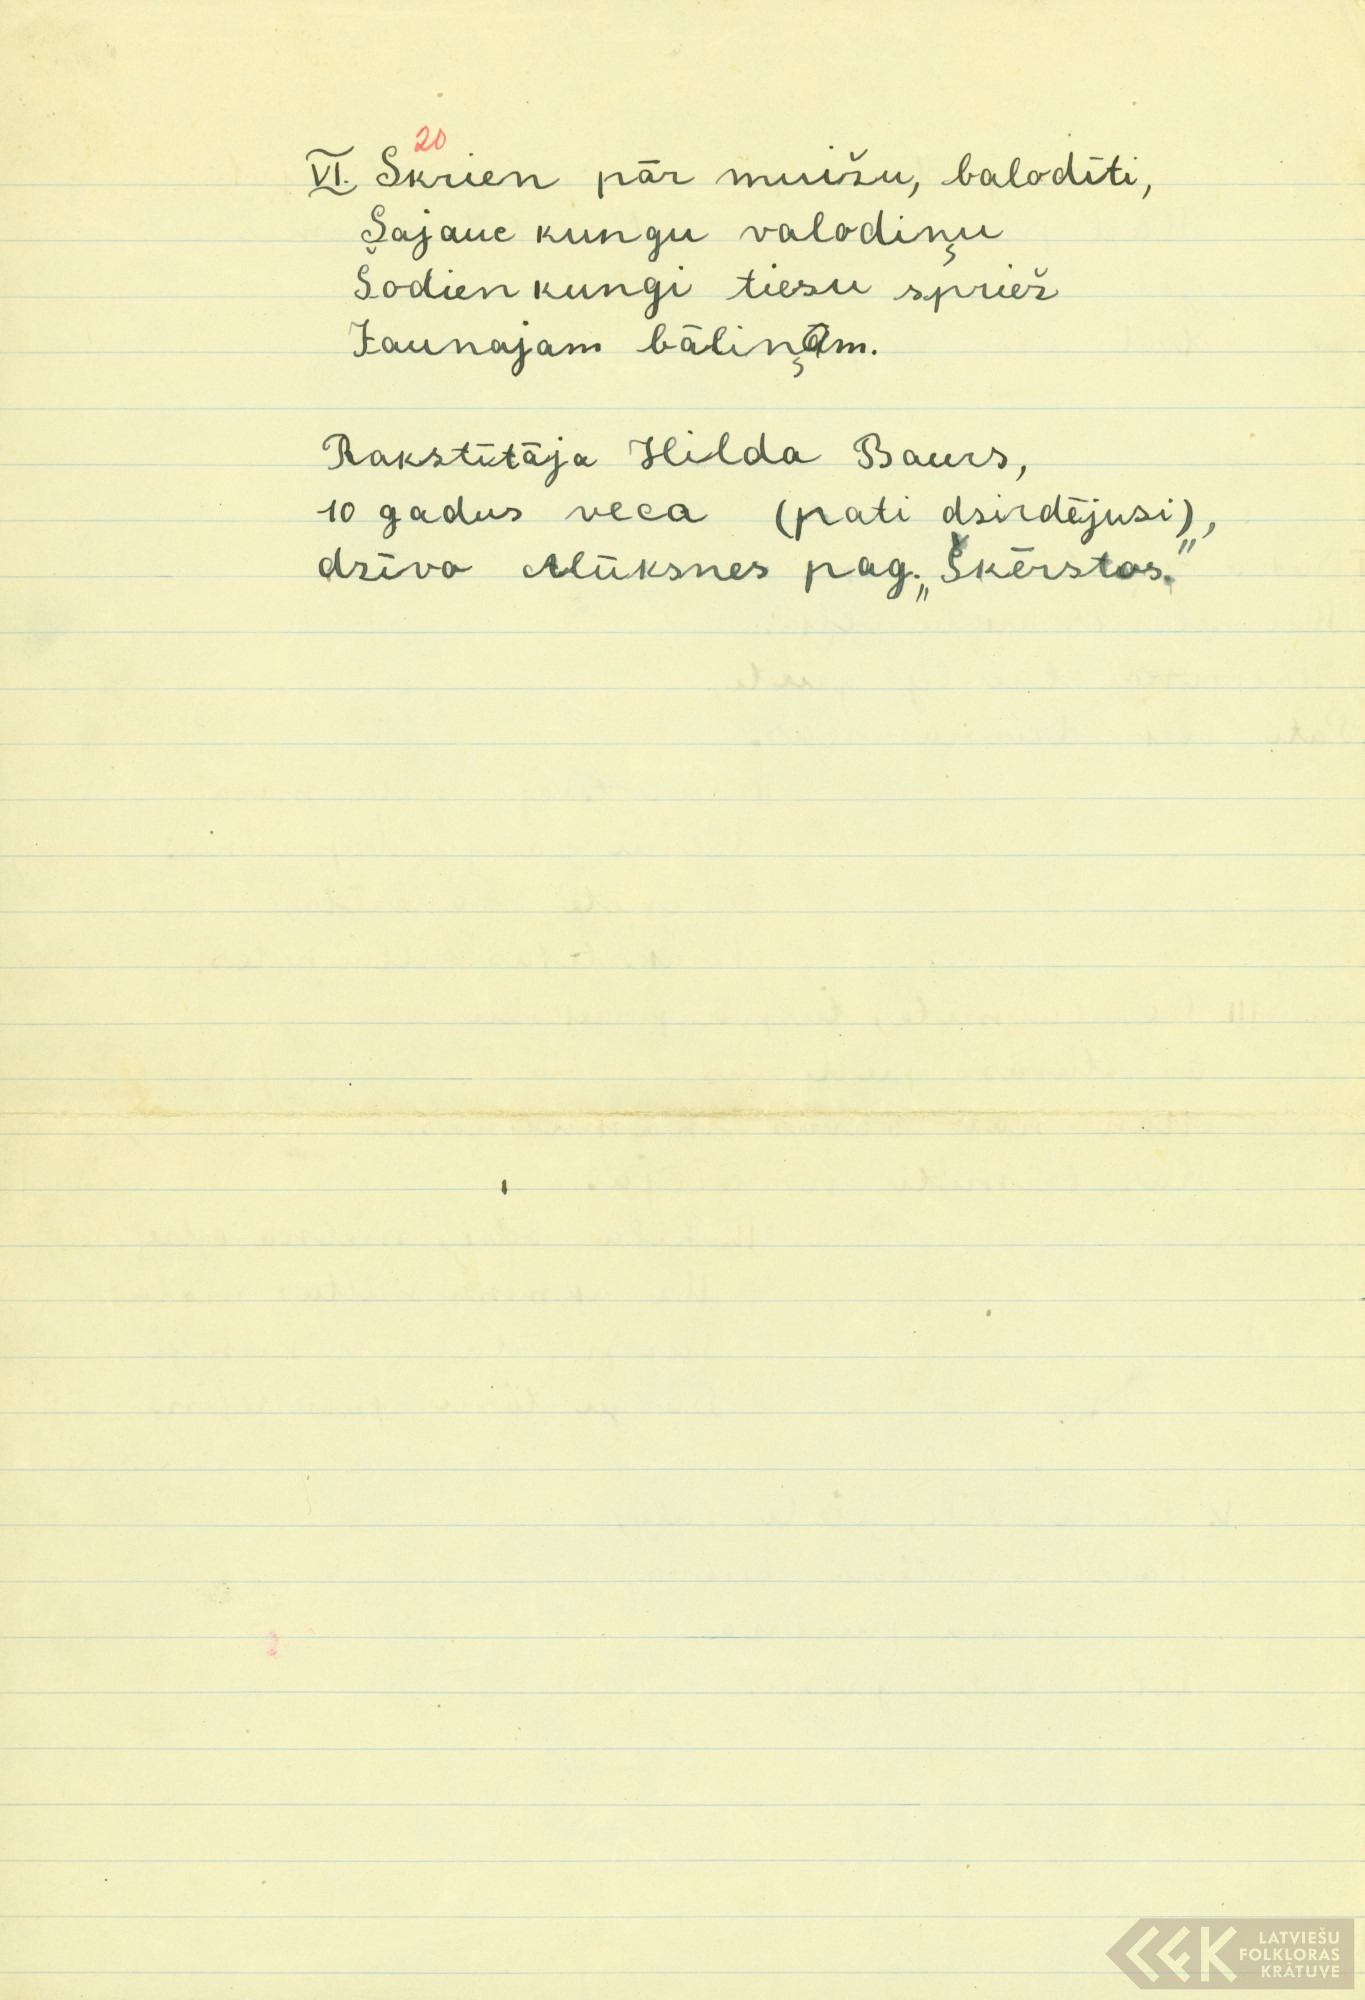 20
VI. Skrien pār muižu, balodīti,
Sajauc kungu valodiņu
Šodien kungi tiesu spriež
Jaunajam bāliņam.
Rakstītāja Hilda Baurs,
10 gadus veca (pati dzirdējusi),
dzīvo Alūksnes pag. „Šķērstos."
LATVIEŠU
FOLKLORAS
KRĀTUVE